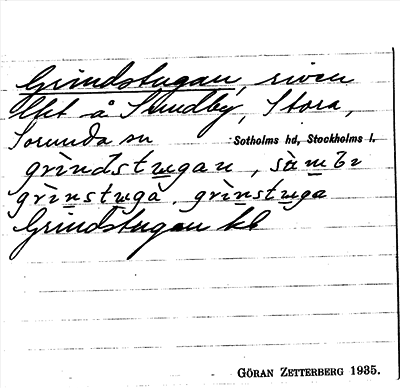 Grindstugan, riven
lht å Sundby, Stora,
Sorunda sn Sotholms hd, Stockholms l.
grìndstugan, sàmbr
grìnstuga. grìnstuga
Grindstugan kb
GÖRAN ZETTERBERG 1935.